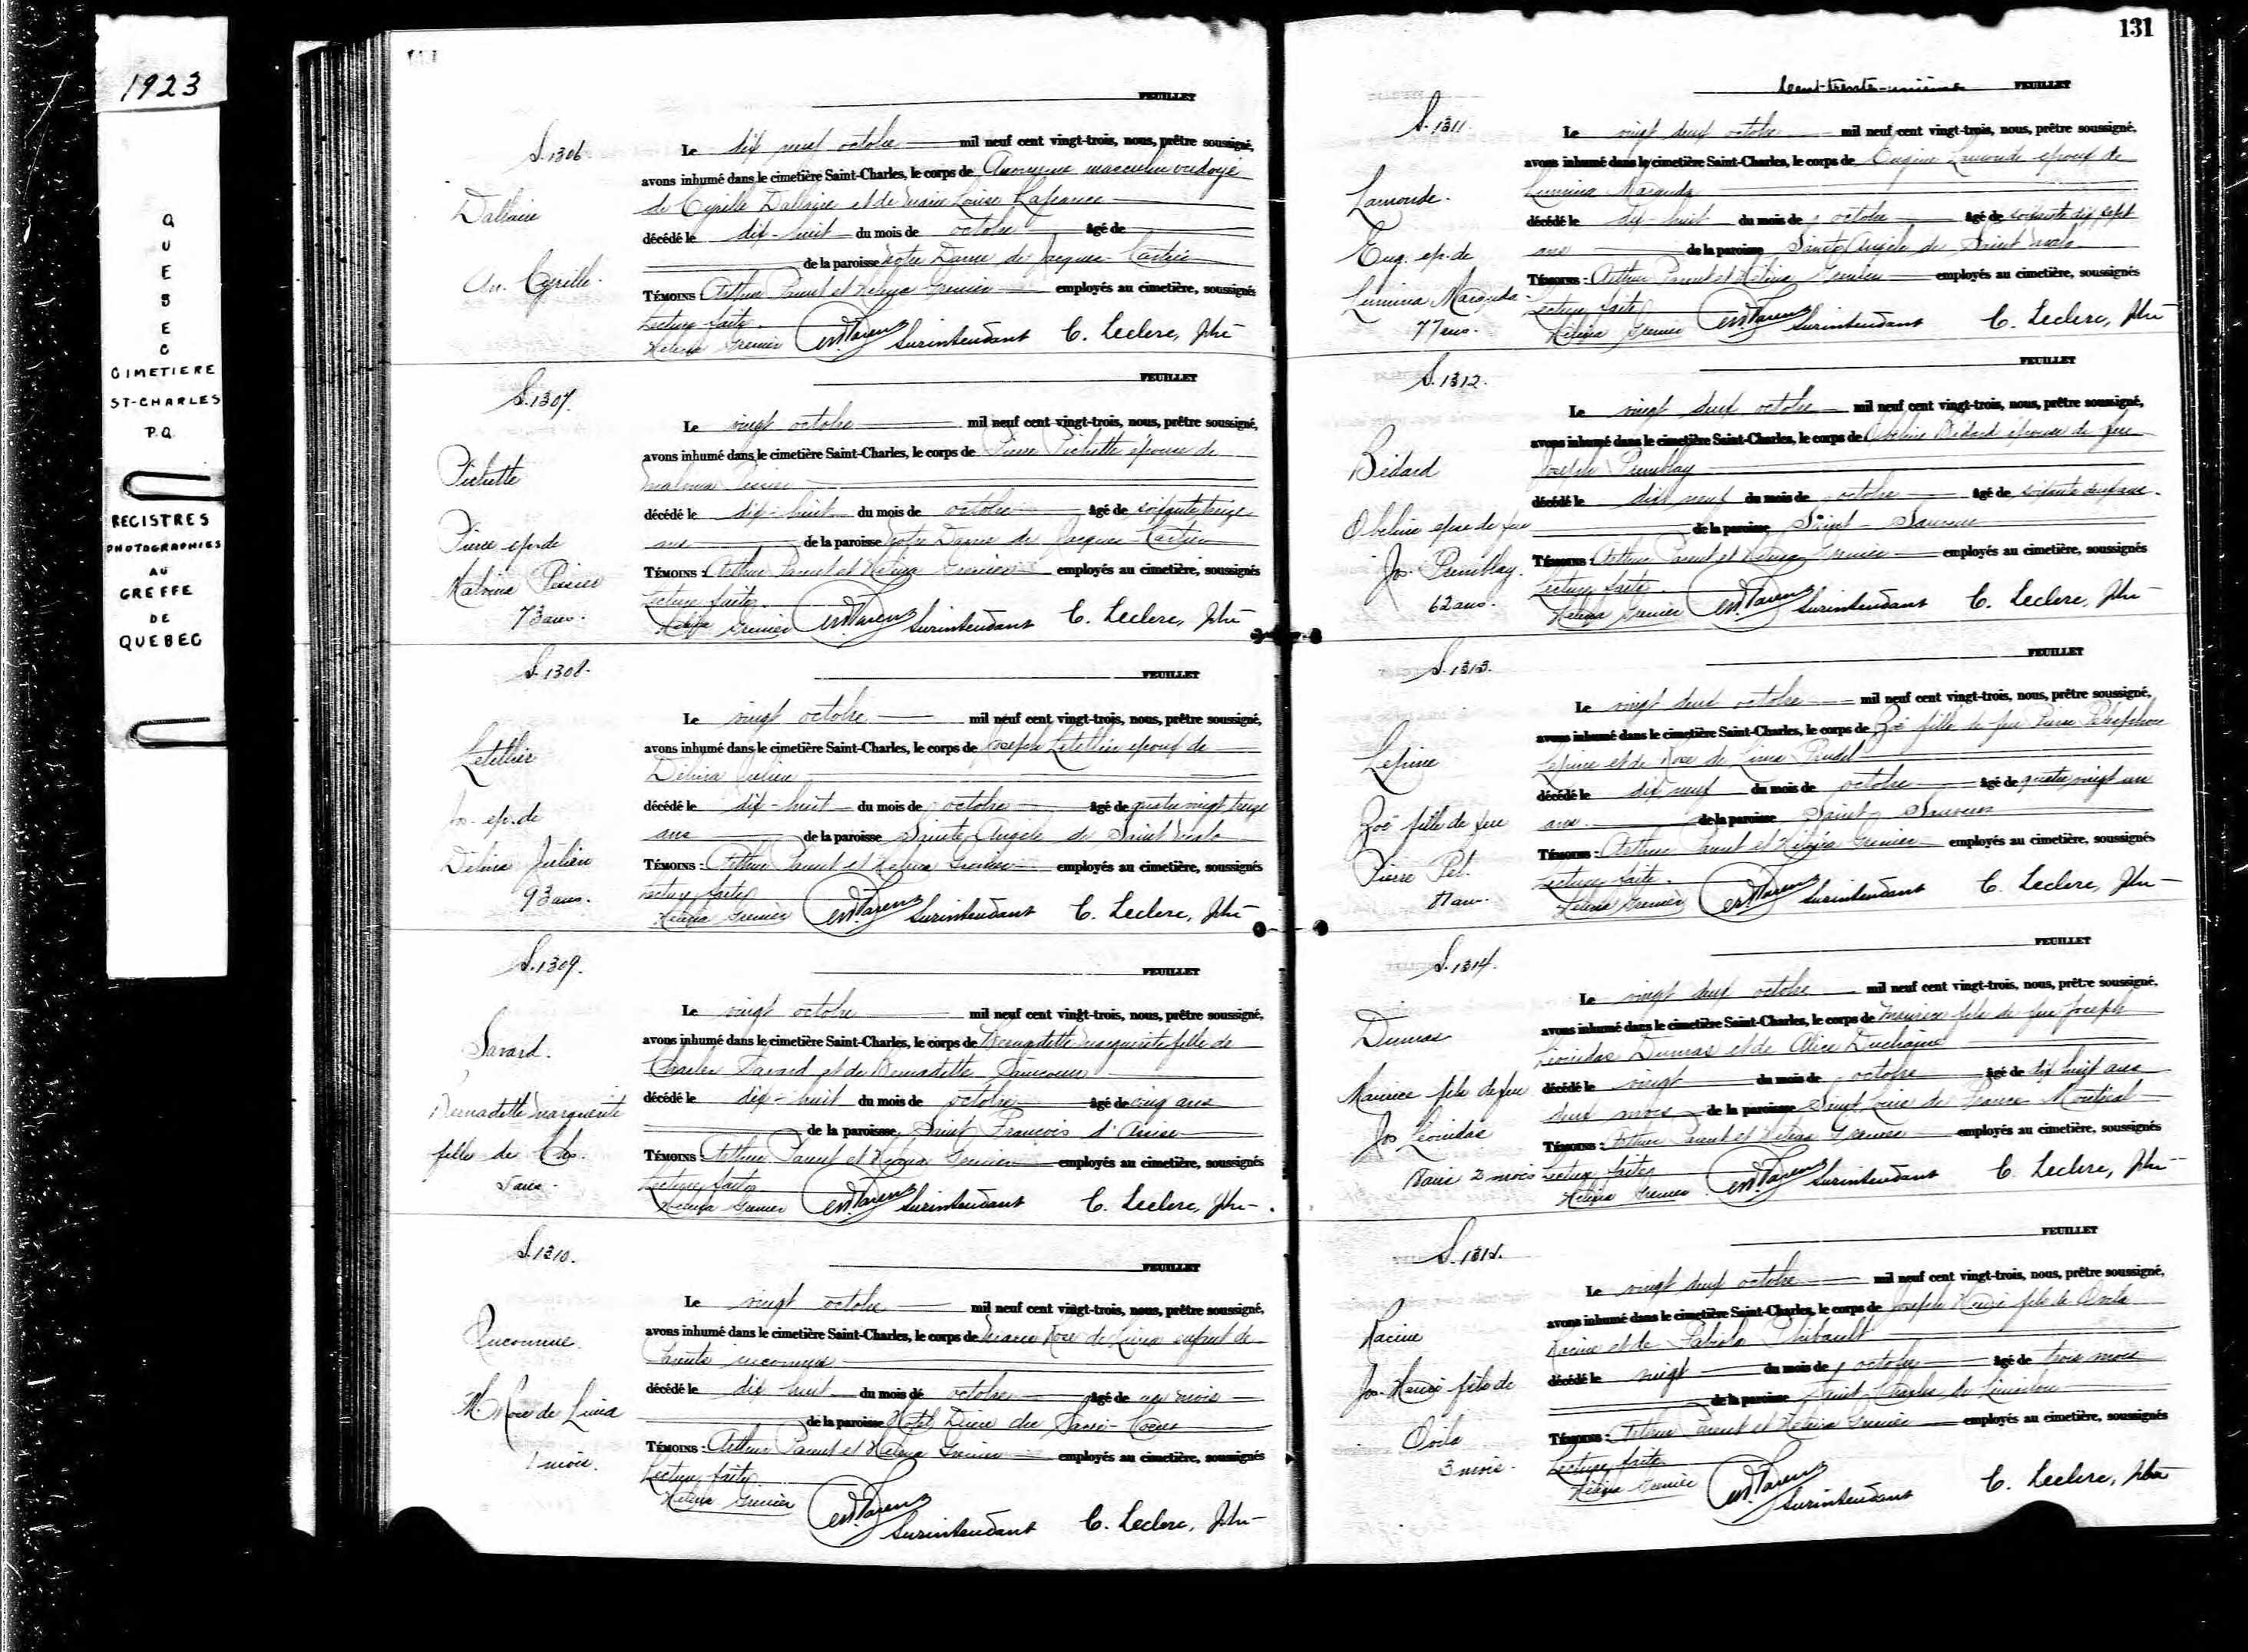 1923
QUEBEC
CIMETIERE
ST-CHARLES
P.Q.
REGISTRES
PHOTOGRAPHIES
AU
GREFFE
DE
QUEBEC
FEUILLET
S.1306
Dallaire
An. Cyrille
Le dix neuf octobre mil neuf cent vingt-trois, nous, prêtre soussigné,
avons inhumé dans le cimetière Saint-Charles, le corps de Anonyme masculin ondoyé
de Cyrille Dallaire et de Marie Louise Lafrance
décédé le dix-huit du mois de octobre âgé de
de la paroisse Notre Dame de Jacques-Cartier
TÉMOINS: Arthur Parent et Helena Grenier employés au cimetière, soussignés
Lecture faite.
Helena Grenier Surintendant C. Leclerc, Ptre
FEUILLET
S.1307.
Pichette
Pierre ep. de
Malvina Poirier
73 ans.
Le vingt octobre mil neuf cent vingt-trois, nous, prêtre soussigné,
avons inhumé dans le cimetière Saint-Charles, le corps de Pierre Pichette époux de
Malvina Poirier
décédé le dix-huit du mois de octobre âgé de soixante treize
ans de la paroisse Notre Dame de Jacques-Cartier
TÉMOINS: Arthur Parent et Helena Grenier employés au cimetière, soussignés
Lecture faite.
Helena Grenier Surintendant C. Leclerc, Ptre
FEUILLET
S.1308.
Letellier
Jos. ep. de
Delina Julien
93 ans.
Le vingt octobre mil neuf cent vingt-trois, nous, prêtre soussigné,
avons inhumé dans le cimetière Saint-Charles, le corps de Joseph Letellier epoux de
Délina Julien
décédé le dix-huit du mois de octobre âgé de quatre vingt treize
ans de la paroisse Sainte Angele de Saint Malo
TÉMOINS: Arthur Parent et Helena Grenier employés au cimetière, soussignés
Lecture faite
Helena Grenier Surintendant C. Leclerc, Ptre
FEUILLET
S.1309.
Savard.
Bernadette Marguerite
fille de Chs.
5 ans.
Le vingt octobre mil neuf cent vingt-trois, nous, prêtre soussigné,
avons inhumé dans le cimetière Saint-Charles, le corps de Bernadette Marguerite fille de
Charles Savard et de Bernadette
décédé le dix-huit du mois de octobre âgé de cinq ans
de la paroisse Saint François d'Assise
TÉMOINS: Arthur Parent et Helena Grenier employés au cimetière, soussignés
Lecture faite
Helena Grenier Surintendant C. Leclerc, Ptre
FEUILLET
S.1310.
Inconnue
M. Rose de Lima
1 mois.
Le vingt octobre mil neuf cent vingt-trois, nous, prêtre soussigné,
avons inhumé dans le cimetière Saint-Charles, le corps de Marie Rose de Lima enfant de
Parents inconnus
décédé le dix huit du mois de octobre âgé de un mois
de la paroisse Hotel Dieu du Sacré-Coeur
TÉMOINS: Arthur Parent et Helena Grenier employés au cimetière, soussignés
Lecture faite
Helena Grenier
Surintendant C. Leclerc, Ptre
131
Cent-trente-unième FEUILLET
S.1311.
Lamonde.
Eug. ep. de
77 ans.
Le vingt deux octobre mil neuf cent vingt-trois, nous, prêtre soussigné,
avons inhumé dans le cimetière Saint-Charles, le corps de Eugène Lamonde epoux de
décédé le dix-huit du mois de octobre âgé de soixante dix sept
ans de la paroisse Sainte Angèle de Saint Malo
TÉMOINS: Arthur Parent et Helena Grenier employés au cimetière, soussignés
Lecture faite
Helena Grenier Surintendant C. Leclerc, Ptre
FEUILLET
S.1312.
Bédard
Obeline epse de feu
Jos. Tremblay.
62 ans.
Le vingt deux octobre mil neuf cent vingt-trois, nous, prêtre soussigné,
avons inhumé dans le cimetière Saint-Charles, le corps de Obeline Bédard épouse de feu
Joseph Tremblay
décédé le dix neuf du mois de octobre âgé de soixante deux ans.
de la paroisse Saint-Sauveur
TÉMOINS: Arthur Parent et Helena Grenier employés au cimetière, soussignés
Lecture faite.
Helena Grenier Surintendant C. Leclerc, Ptre
FEUILLET
S.1313.
Lepine
Zoé fille de feu
Pierre Tel.
81 ans.
Le vingt deux octobre mil neuf cent vingt-trois, nous, prêtre soussigné,
avons inhumé dans le cimetière Saint-Charles, le corps de Zoé fille de feu Pierre Telesphore
Lepine et de Rose de Lima
décédé le dix neuf du mois de octobre âgé de quatre vingt un
ans. de la paroisse Saint Sauveur
TÉMOINS: Arthur Parent et Helena Grenier employés au cimetière, soussignés
Lecture faite.
Helena Grenier Surintendant C. Leclerc, Ptre
FEUILLET
S.1314.
Dumas
Maurice fils de feu
Jos Léonidas
18 ans 2 mois
Le vingt deux octobre mil neuf cent vingt-trois, nous, prêtre soussigné,
avons inhumé dans le cimetière Saint-Charles, le corps de Maurice fils de feu Joseph
Léonidas Dumas et de Alice Duchaine
décédé le vingt du mois de octobre âgé de dix huit ans
deux mois de la paroisse Saint Louis de France Montréal
TÉMOINS: Arthur Parent et Helena Grenier employés au cimetière, soussignés
Lecture faite
Helena Grenier Surintendant C. Leclerc, Ptre
FEUILLET
S.1315.
Racine
Jos. Henri fils de
Ovila
3 mois.
Le vingt deux octobre mil neuf cent vingt-trois, nous, prêtre soussigné,
avons inhumé dans le cimetière Saint-Charles, le corps de Joseph Henri fils de Ovila
Racine et de Fabiola Thibault
décédé le vingt du mois de octobre âgé de trois mois
de la paroisse Saint Charles de Limoilou
TÉMOINS: Arthur Parent et Helena Grenier employés au cimetière, soussignés
Lecture faite
Helena Grenier
Surintendant C. Leclerc, Ptre